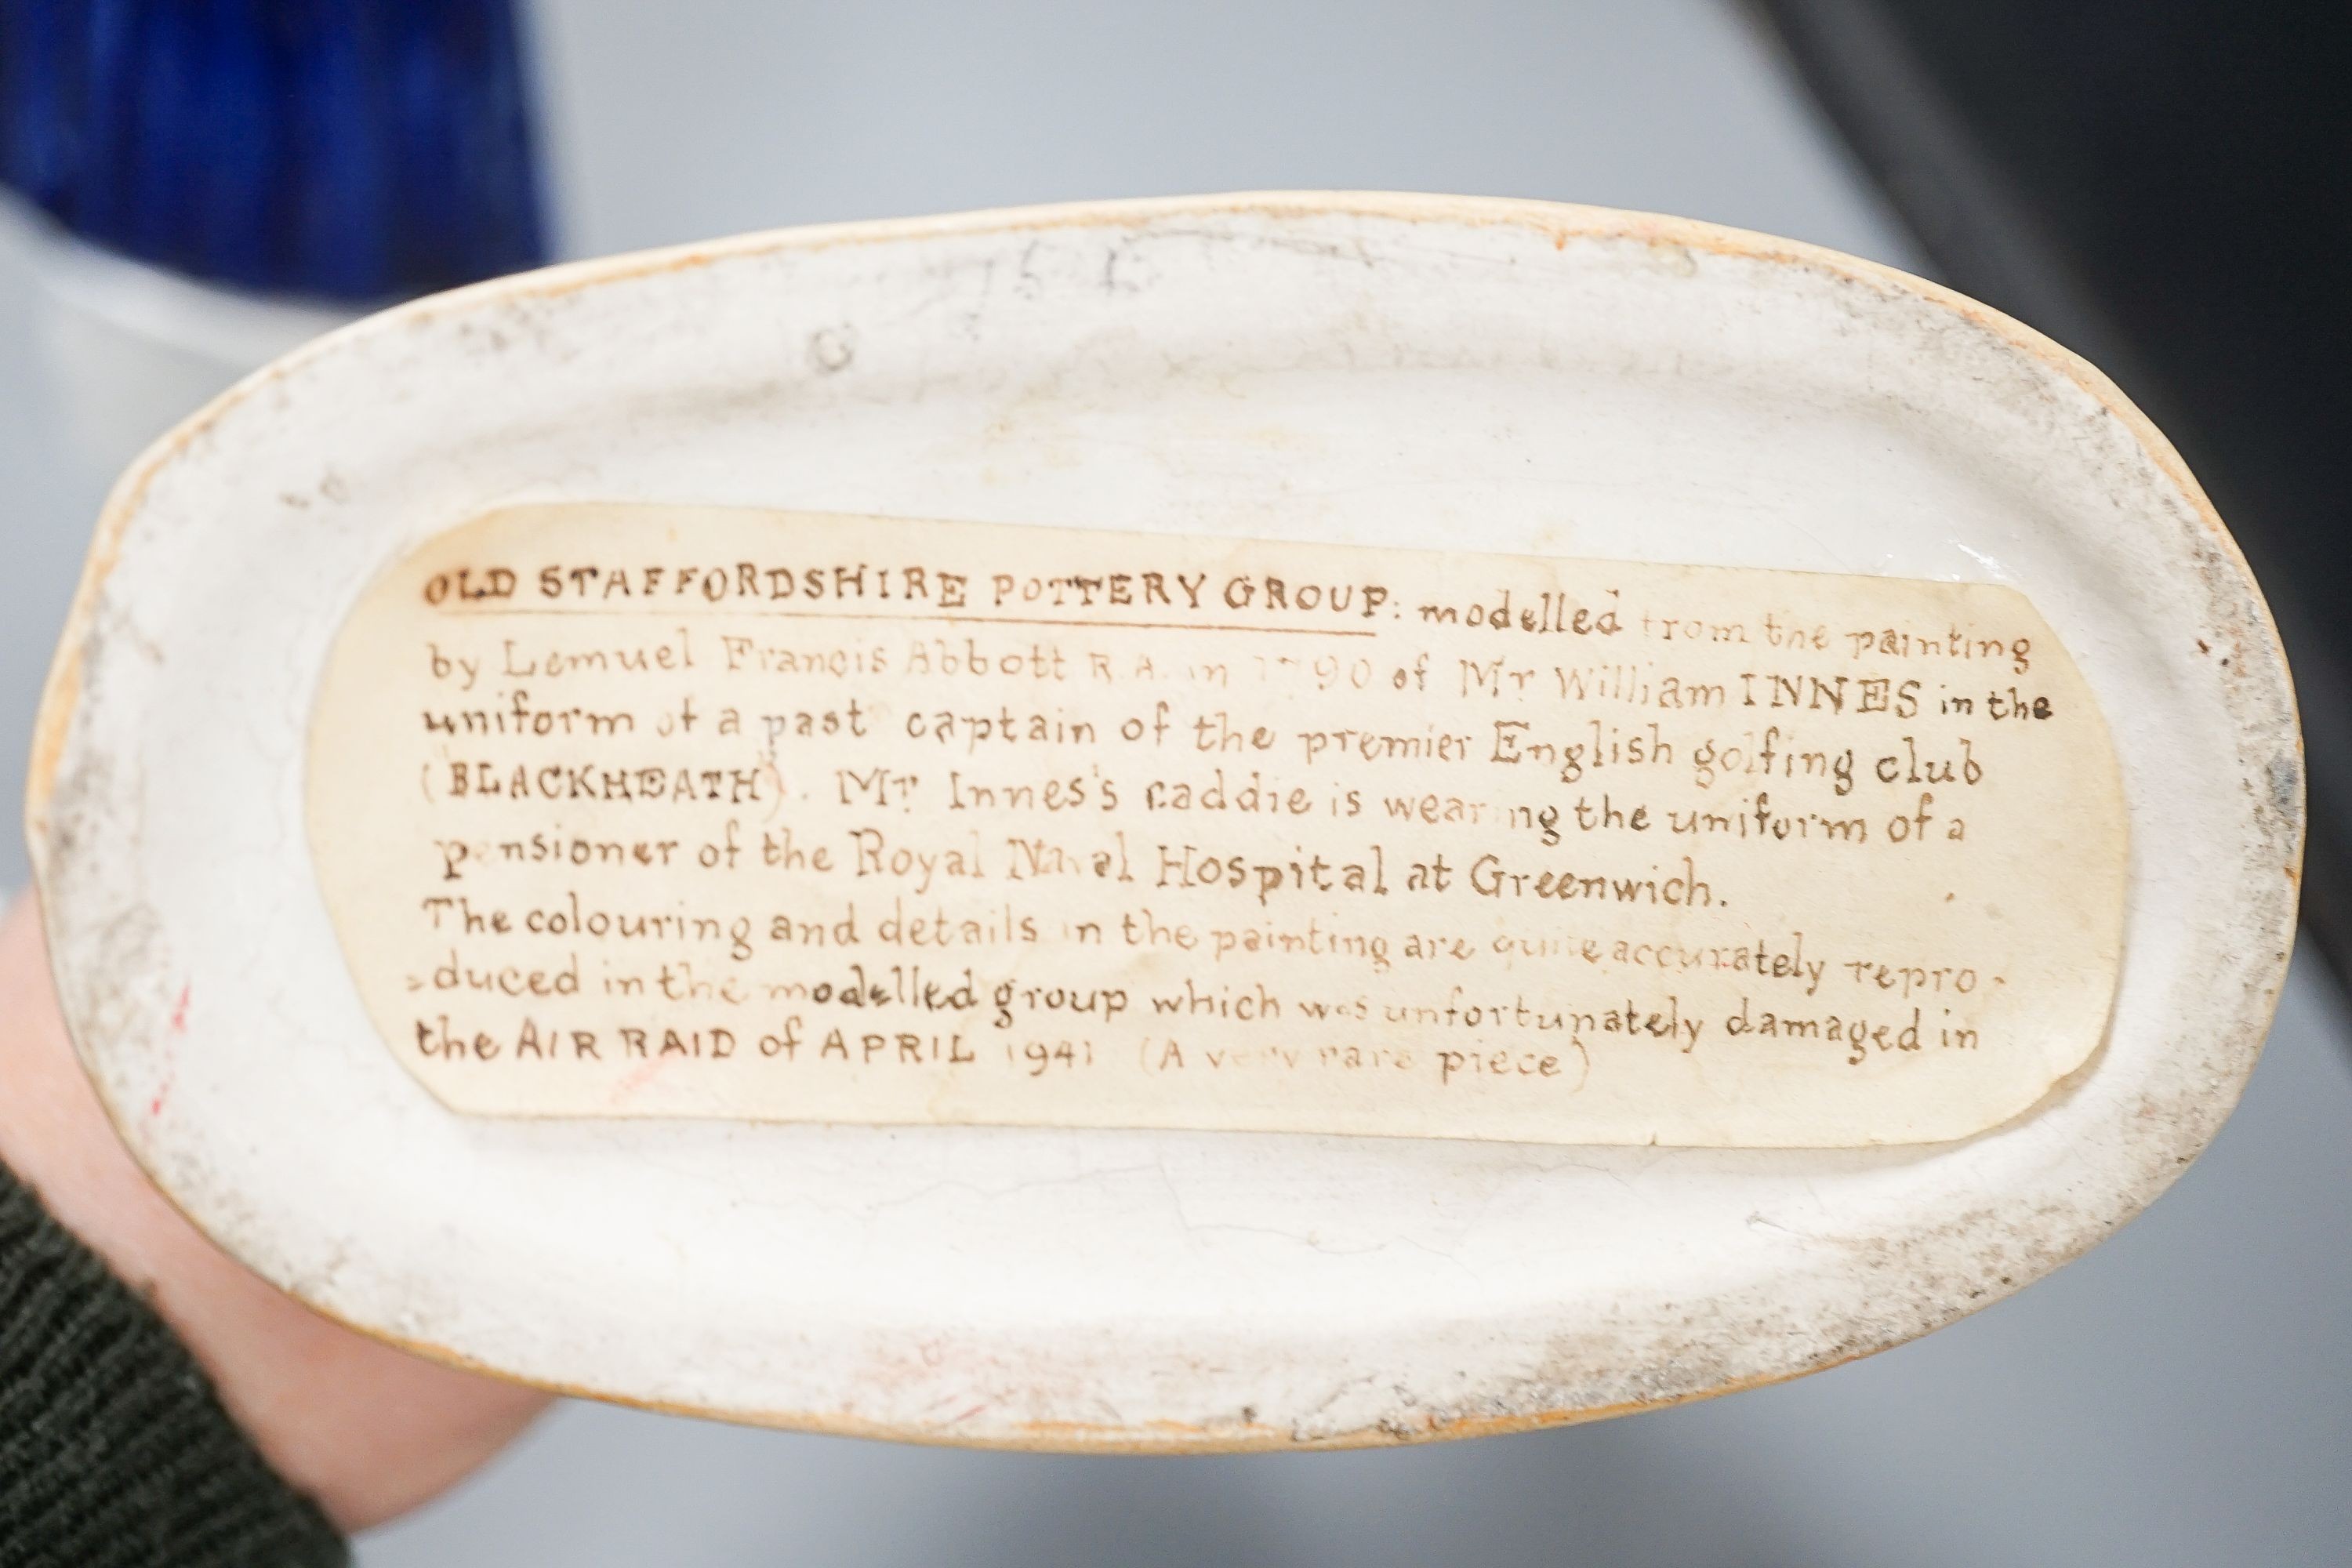 OLD STAFFORDSHIRE POTTERY GROUP: modelled from the painting
by Lemuel Francis Abbott R.A. in 1790 of Mr William INNES in the
uniform of a past captain of the premier English golfing club
(BLACKHEATH). Mr Innes's caddie is wearing the uniform of a
pensioner of the Royal Naval Hospital at Greenwich.
The colouring and details in the painting are quite accurately repro-
=duced in the modelled group which was unfortunately damaged in
the AIR RAID of APRIL 1941 (A very rare piece)